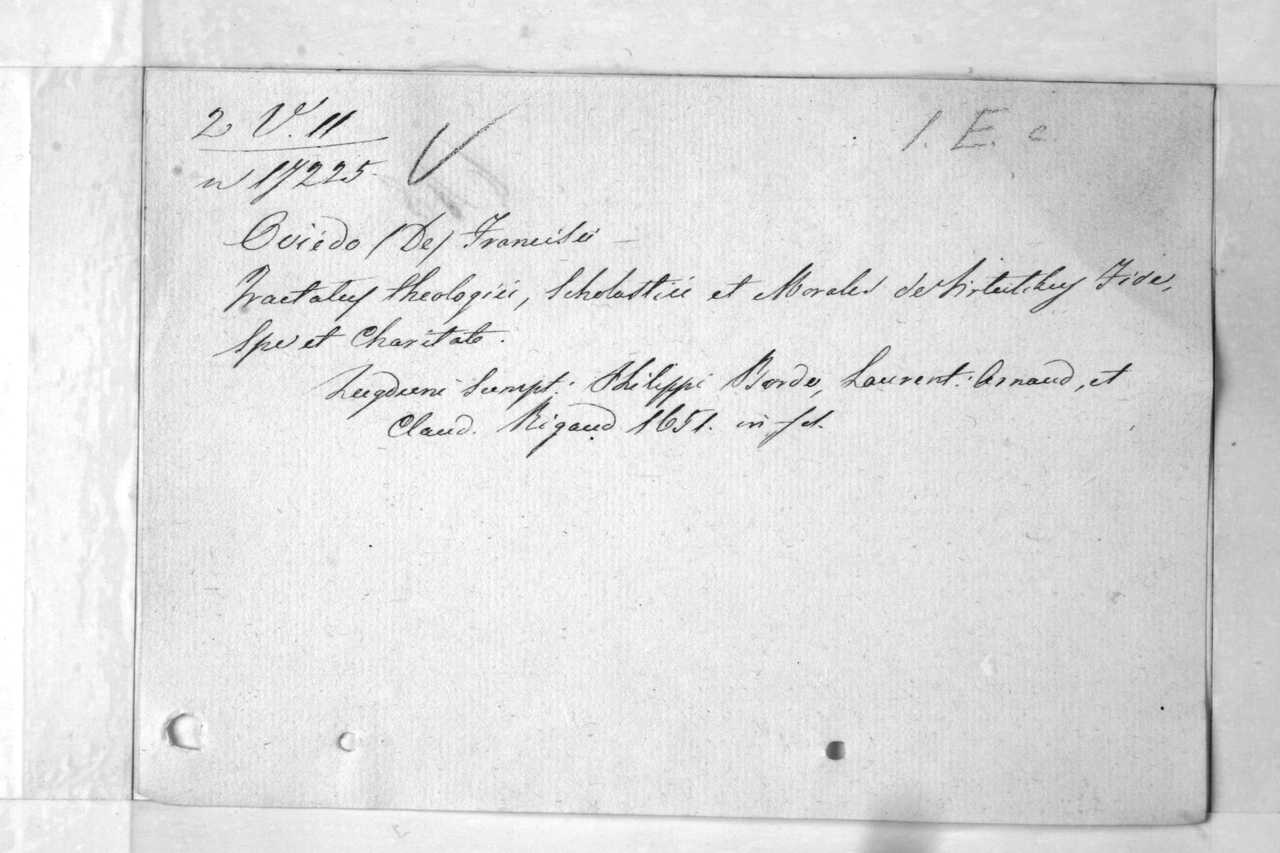 2 V. 11
n 17225
1. E. c.
Oviédo (De) Francisci
Tractatus theologici, Scholastici et Morales de Virtutibus Fide,
Spe et Charitate.
Lugduni Sumpt: Philippi Borde, Laurent: Arnaud, et
Claud. Rigaud 1651. in-fol.